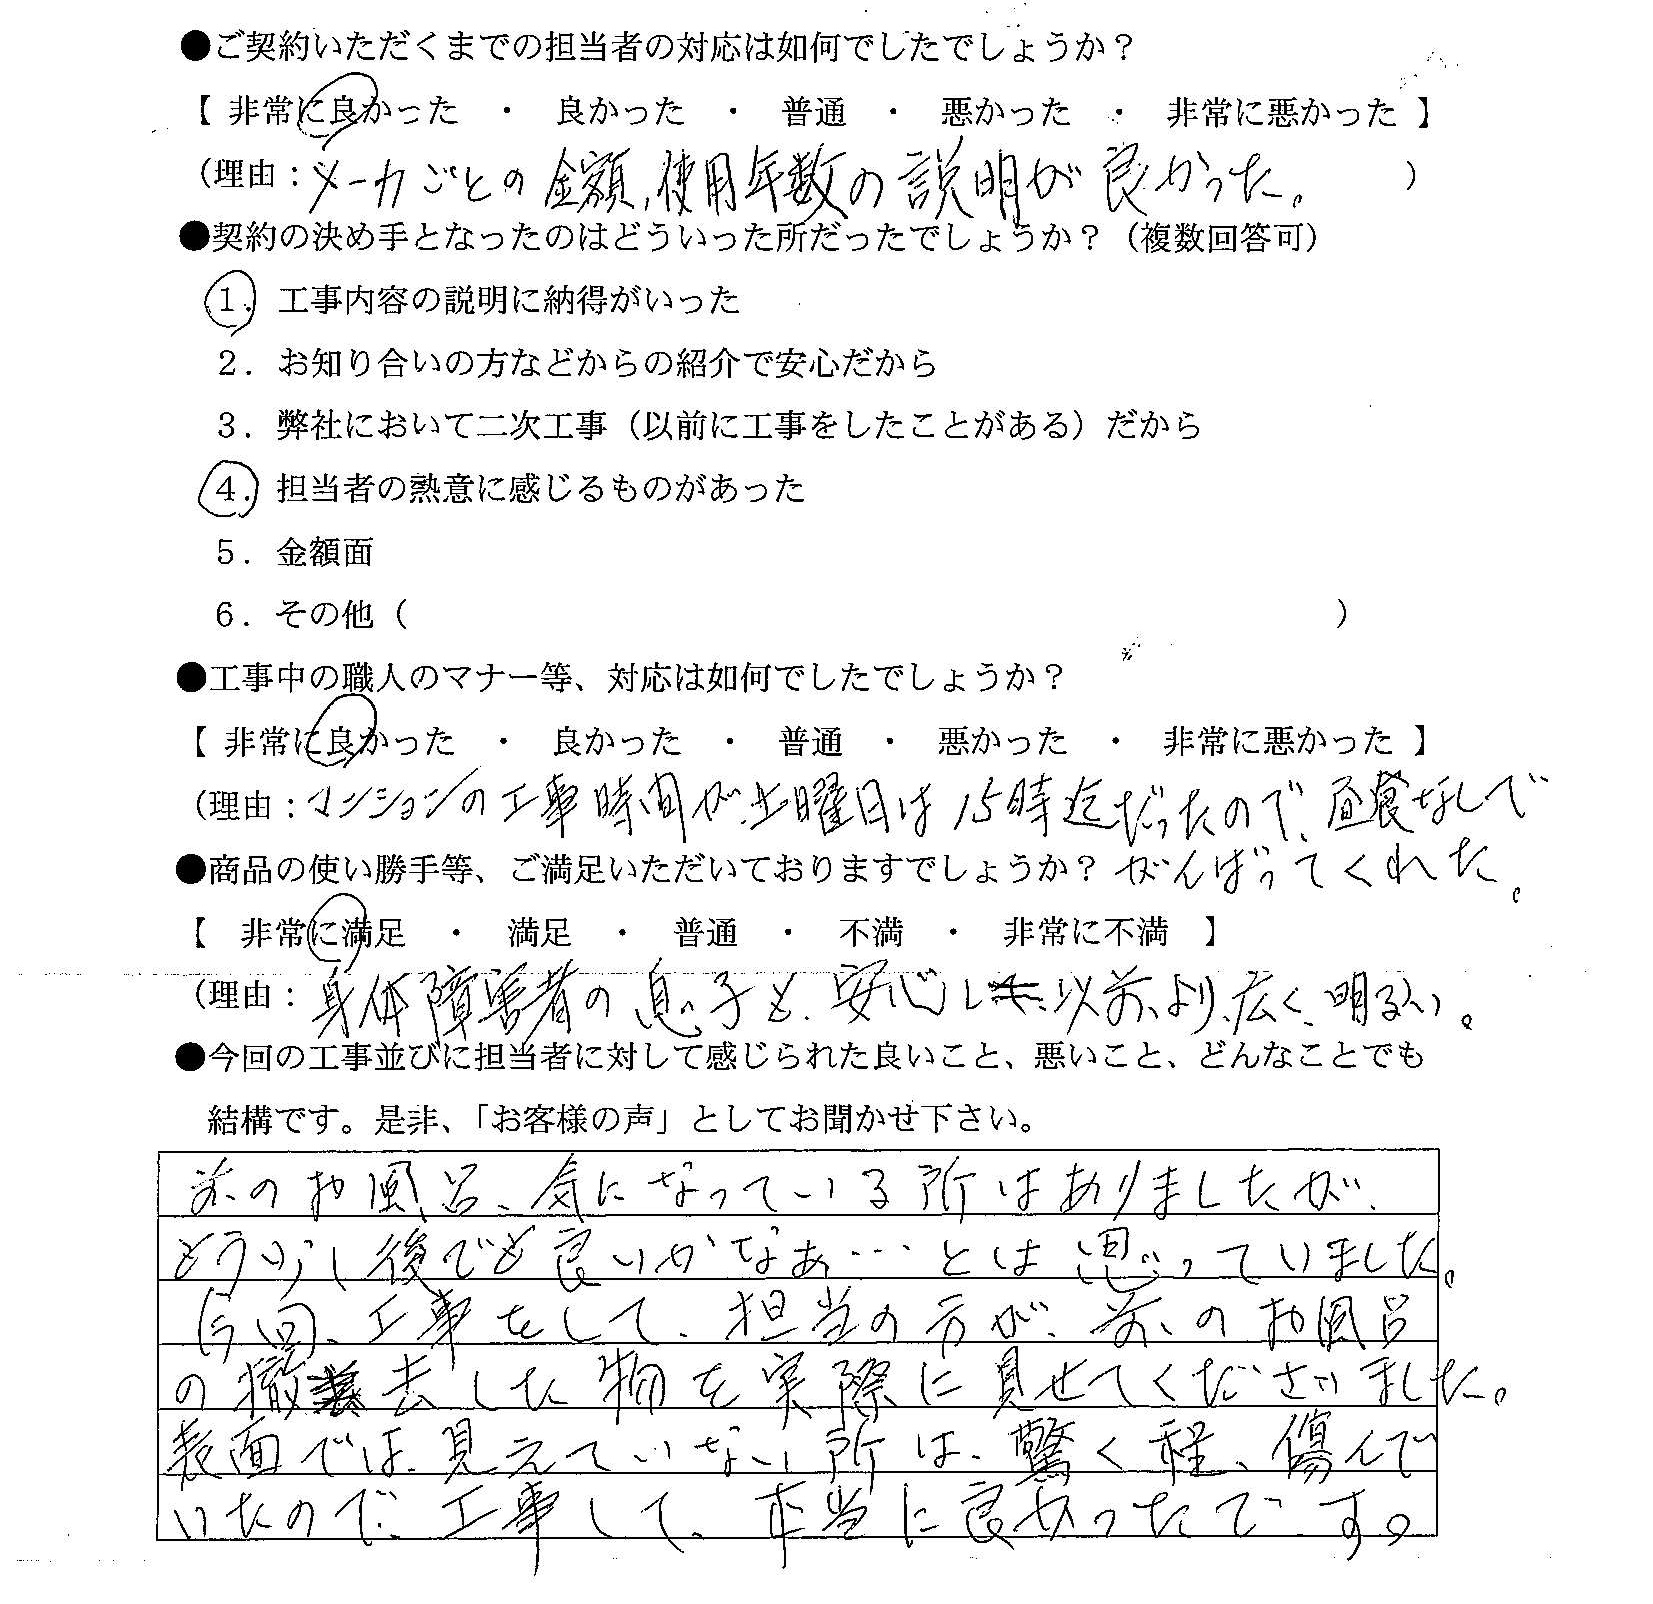 ●ご契約いただくまでの担当者の対応は如何でしたでしょうか？
【 非常に良かった ・ 良かった ・ 普通 ・ 悪かった ・ 非常に悪かった 】
（理由：メーカごとの金額、使用年数の説明が良かった。 ）
●契約の決め手となったのはどういった所だったでしょうか？（複数回答可）
1. 工事内容の説明に納得がいった
2. お知り合いの方などからの紹介で安心だから
3. 弊社において二次工事（以前に工事をしたことがある）だから
4. 担当者の熱意に感じるものがあった
5. 金額面
6. その他（ ）
●工事中の職人のマナー等、対応は如何でしたでしょうか？
【 非常に良かった ・ 良かった ・ 普通 ・ 悪かった ・ 非常に悪かった 】
（理由：マンションの工事時間が、土曜日は15時迄だったので、昼食なしで
がんばってくれた。
●商品の使い勝手等、ご満足いただいておりますでしょうか？
【 非常に満足 ・ 満足 ・ 普通 ・ 不満 ・ 非常に不満 】
（理由：身体障害者の息子も、安心し 以前より、広く、明るい。
●今回の工事並びに担当者に対して感じられた良いこと、悪いこと、どんなことでも
結構です。是非、「お客様の声」としてお聞かせ下さい。
前のお風呂、気になっている所はありましたが、
もう少し後でも良いかなぁ…とは思っていました。
今回、工事をして、担当の方が、前のお風呂
の撤去した物を実際に見せてくださいました。
表面では、見えていない所は、驚く程、傷んで
いたので、工事して、本当に良かったです。